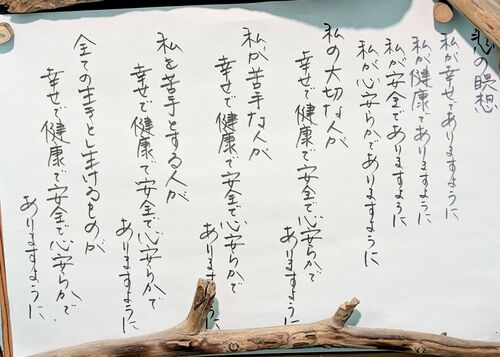 慈悲の瞑想
私が幸せでありますように
私が健康でありますように
私が安全でありますように
私が心安らかでありますように
私の大切な人が
幸せで健康で安全で心安らかで
ありますように
私が苦手な人が
幸せで健康で安全で心安らかで
ありますように
私を苦手とする人が
幸せで健康で安全で心安らかで
ありますように
全ての生きとし生けるものが
幸せで健康で安全で心安らかで
ありますように